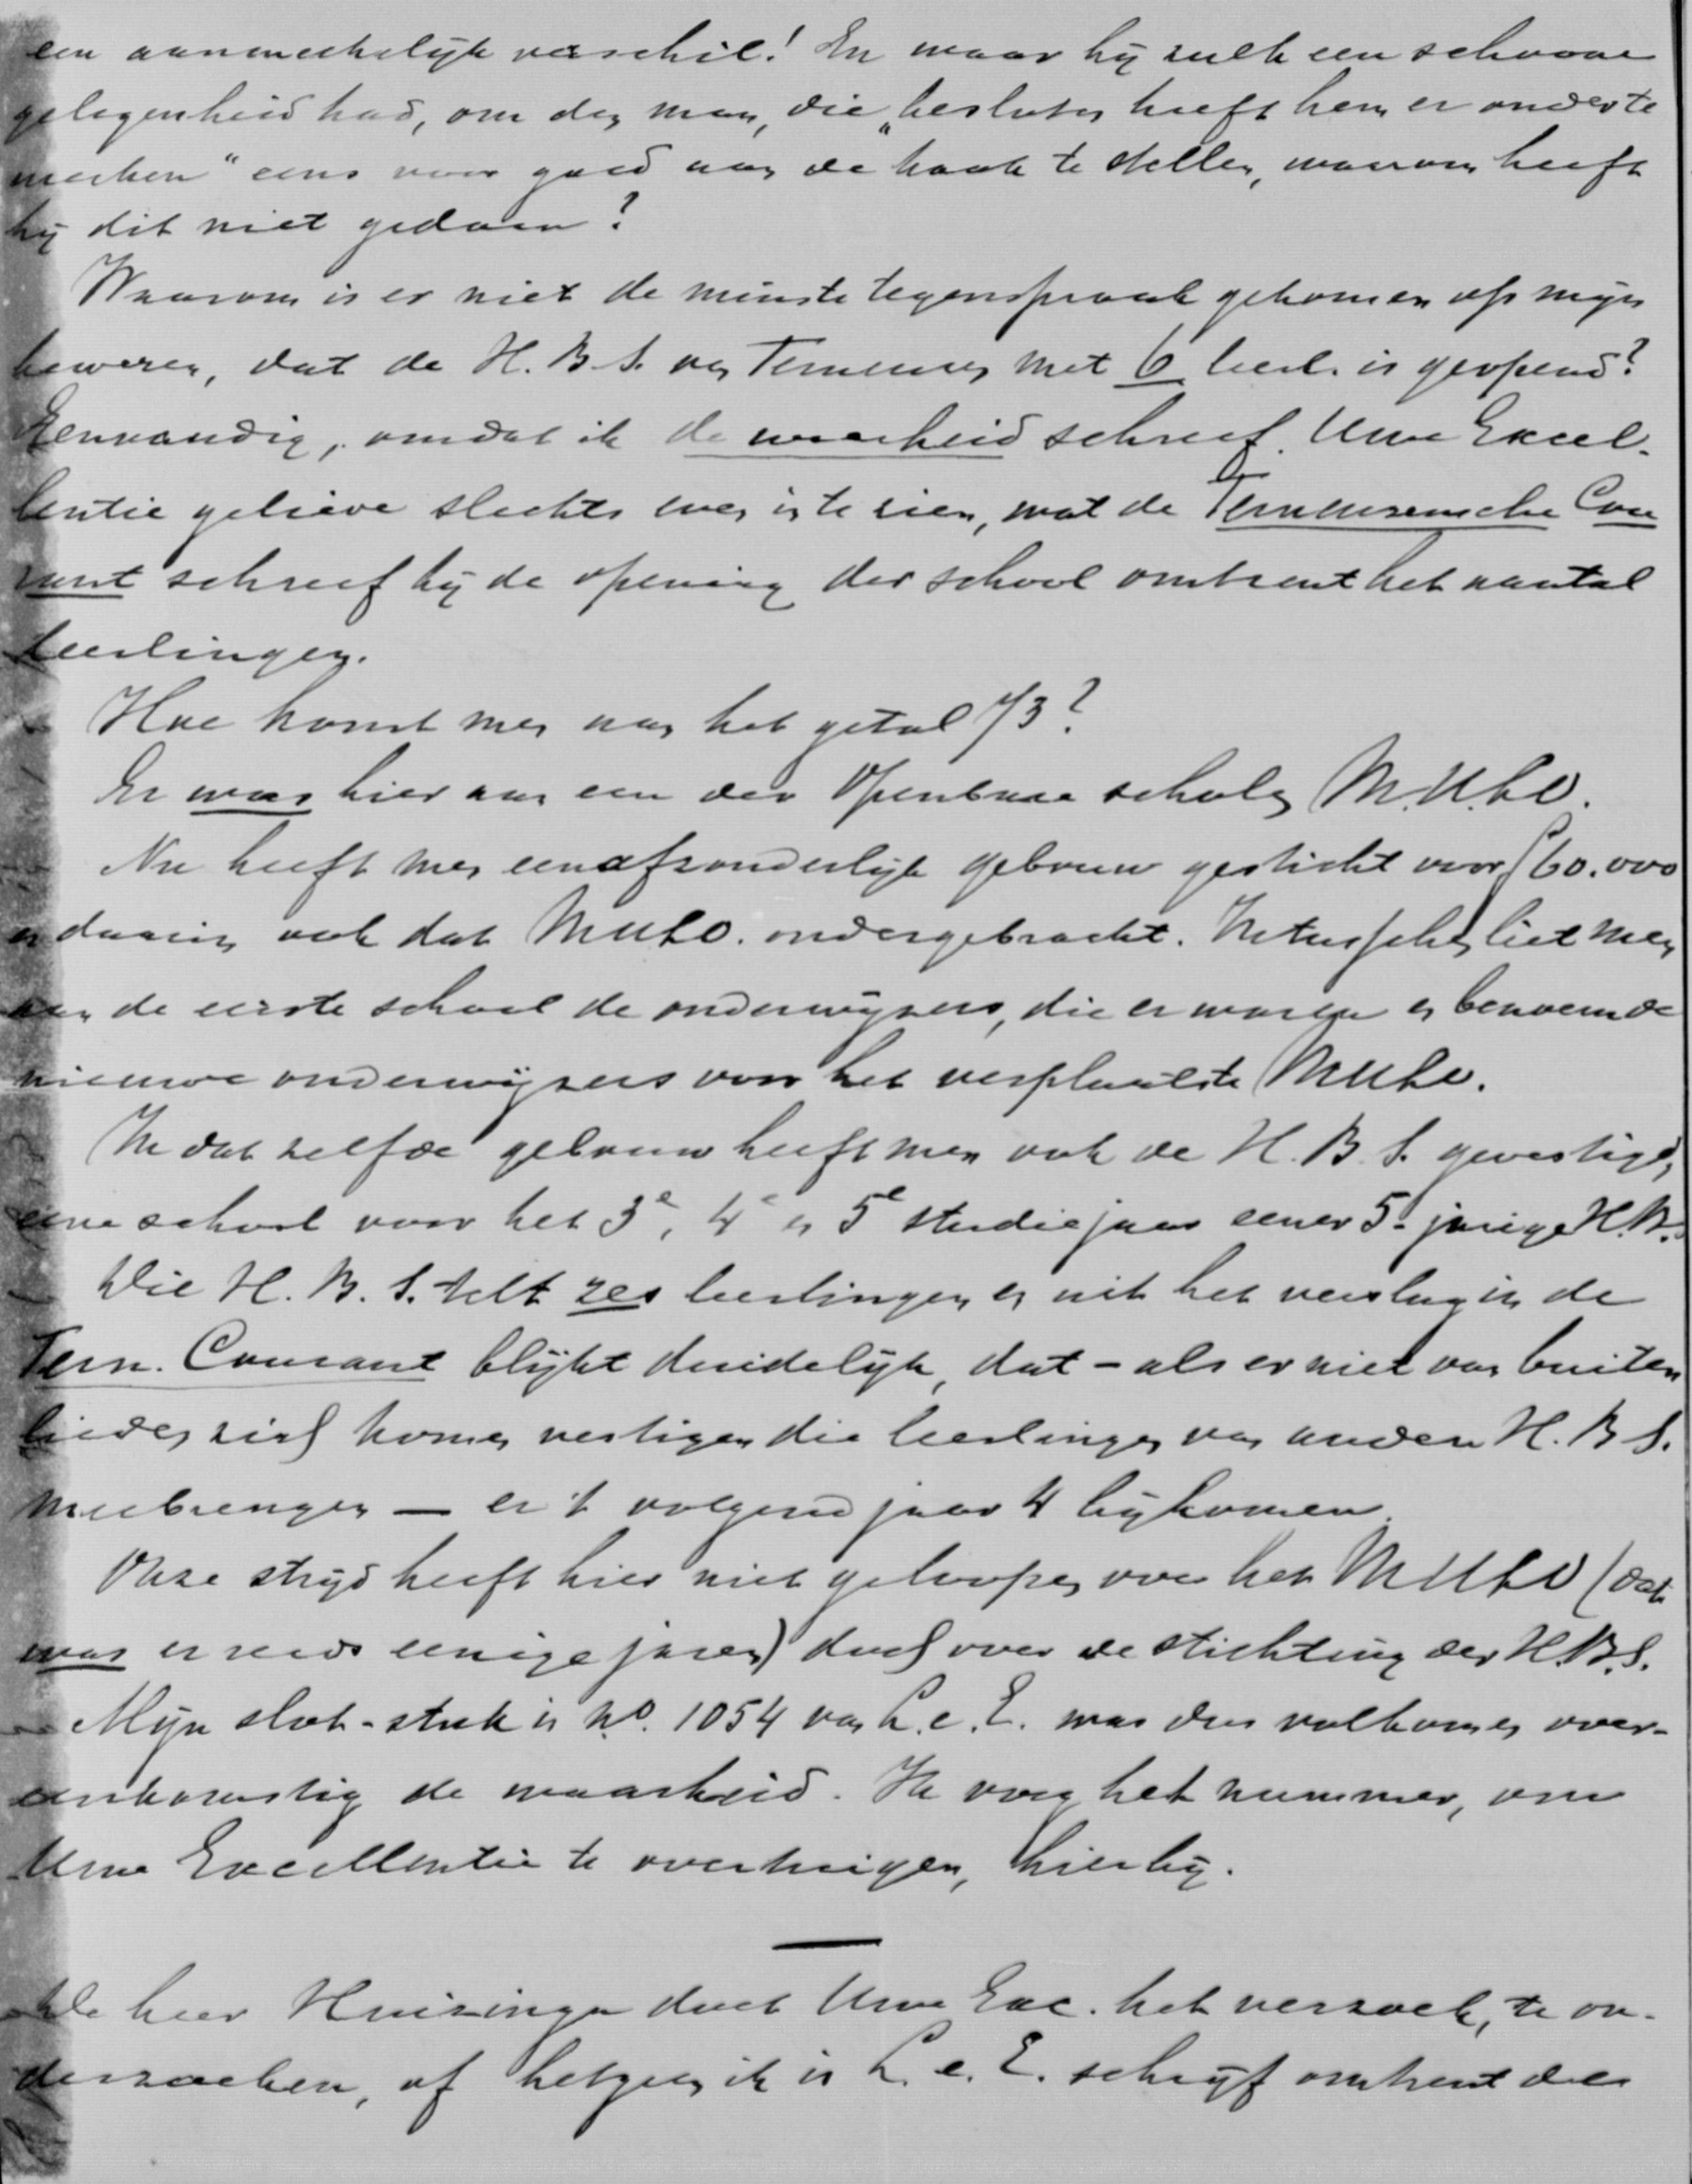 een aanmerkelijk verschil! En waar hij zulk een schoone
gelegenheid had, om den man, die „besloten heeft hem er onder te
werken" eens voor goed aan de kaak te stellen, waarom heeft
hij dit niet gedaan?
Waarom is er niet de minste tegenspraak gekomen op mijn
beweren, dat de H.B.S. van Terneuzen met 6 leerl. is geopend?
Eenvoudig, omdat ik de waarheid schreef. Uwe Excel-
lentie gelieve slechts even in te zien, wat de Terneuzensche Cou
rant schreef bij de opening der school omtrent het aantal
leerlingen.
Hoe komt men aan het getal 73?
Er was hier aan een der Openbare scholen M.U.L.O.
Nu heeft men een afzonderlijk gebouw gesticht voor f 60.000
en daarin ook dat M.U.L.O. ondergebracht. Intusschen liet men
aan de eerste school de onderwijzers, die er waren en benoemde
nieuwe onderwijzers voor het verplaatste Mulo.
In dat zelfde gebouw heeft men ook de H.B.S. gevestigd,
eene school voor het 3e, 4e en 5e studiejaar eener 5-jarige H.B.S.
Die H.B.S. telt zes leerlingen en uit het verslag in de
Tern. Courant blijkt duidelijk, dat - als er niet van buiten
lieden zich komen vestigen die leerlingen van andere H.B.S.
meebrengen — er 't volgend jaar 4 bijkomen.
Onze strijd heeft hier niet geloopen over het M.U.L.O (dat
was er reeds eenige jaren) doch over de stichting der H.B.S.
Mijn slot-stuk in No. 1054 van L.e.E. was dus volkomen over-
eenkomstig de waarheid. Ik voeg het nummer, om
Uwe Excellentie te overtuigen, hierbij.
De heer Huizinga doet Uwe Exc. het verzoek, te on-
derzoeken, of hetgeen ik in L.e.E. schrijf omtrent de